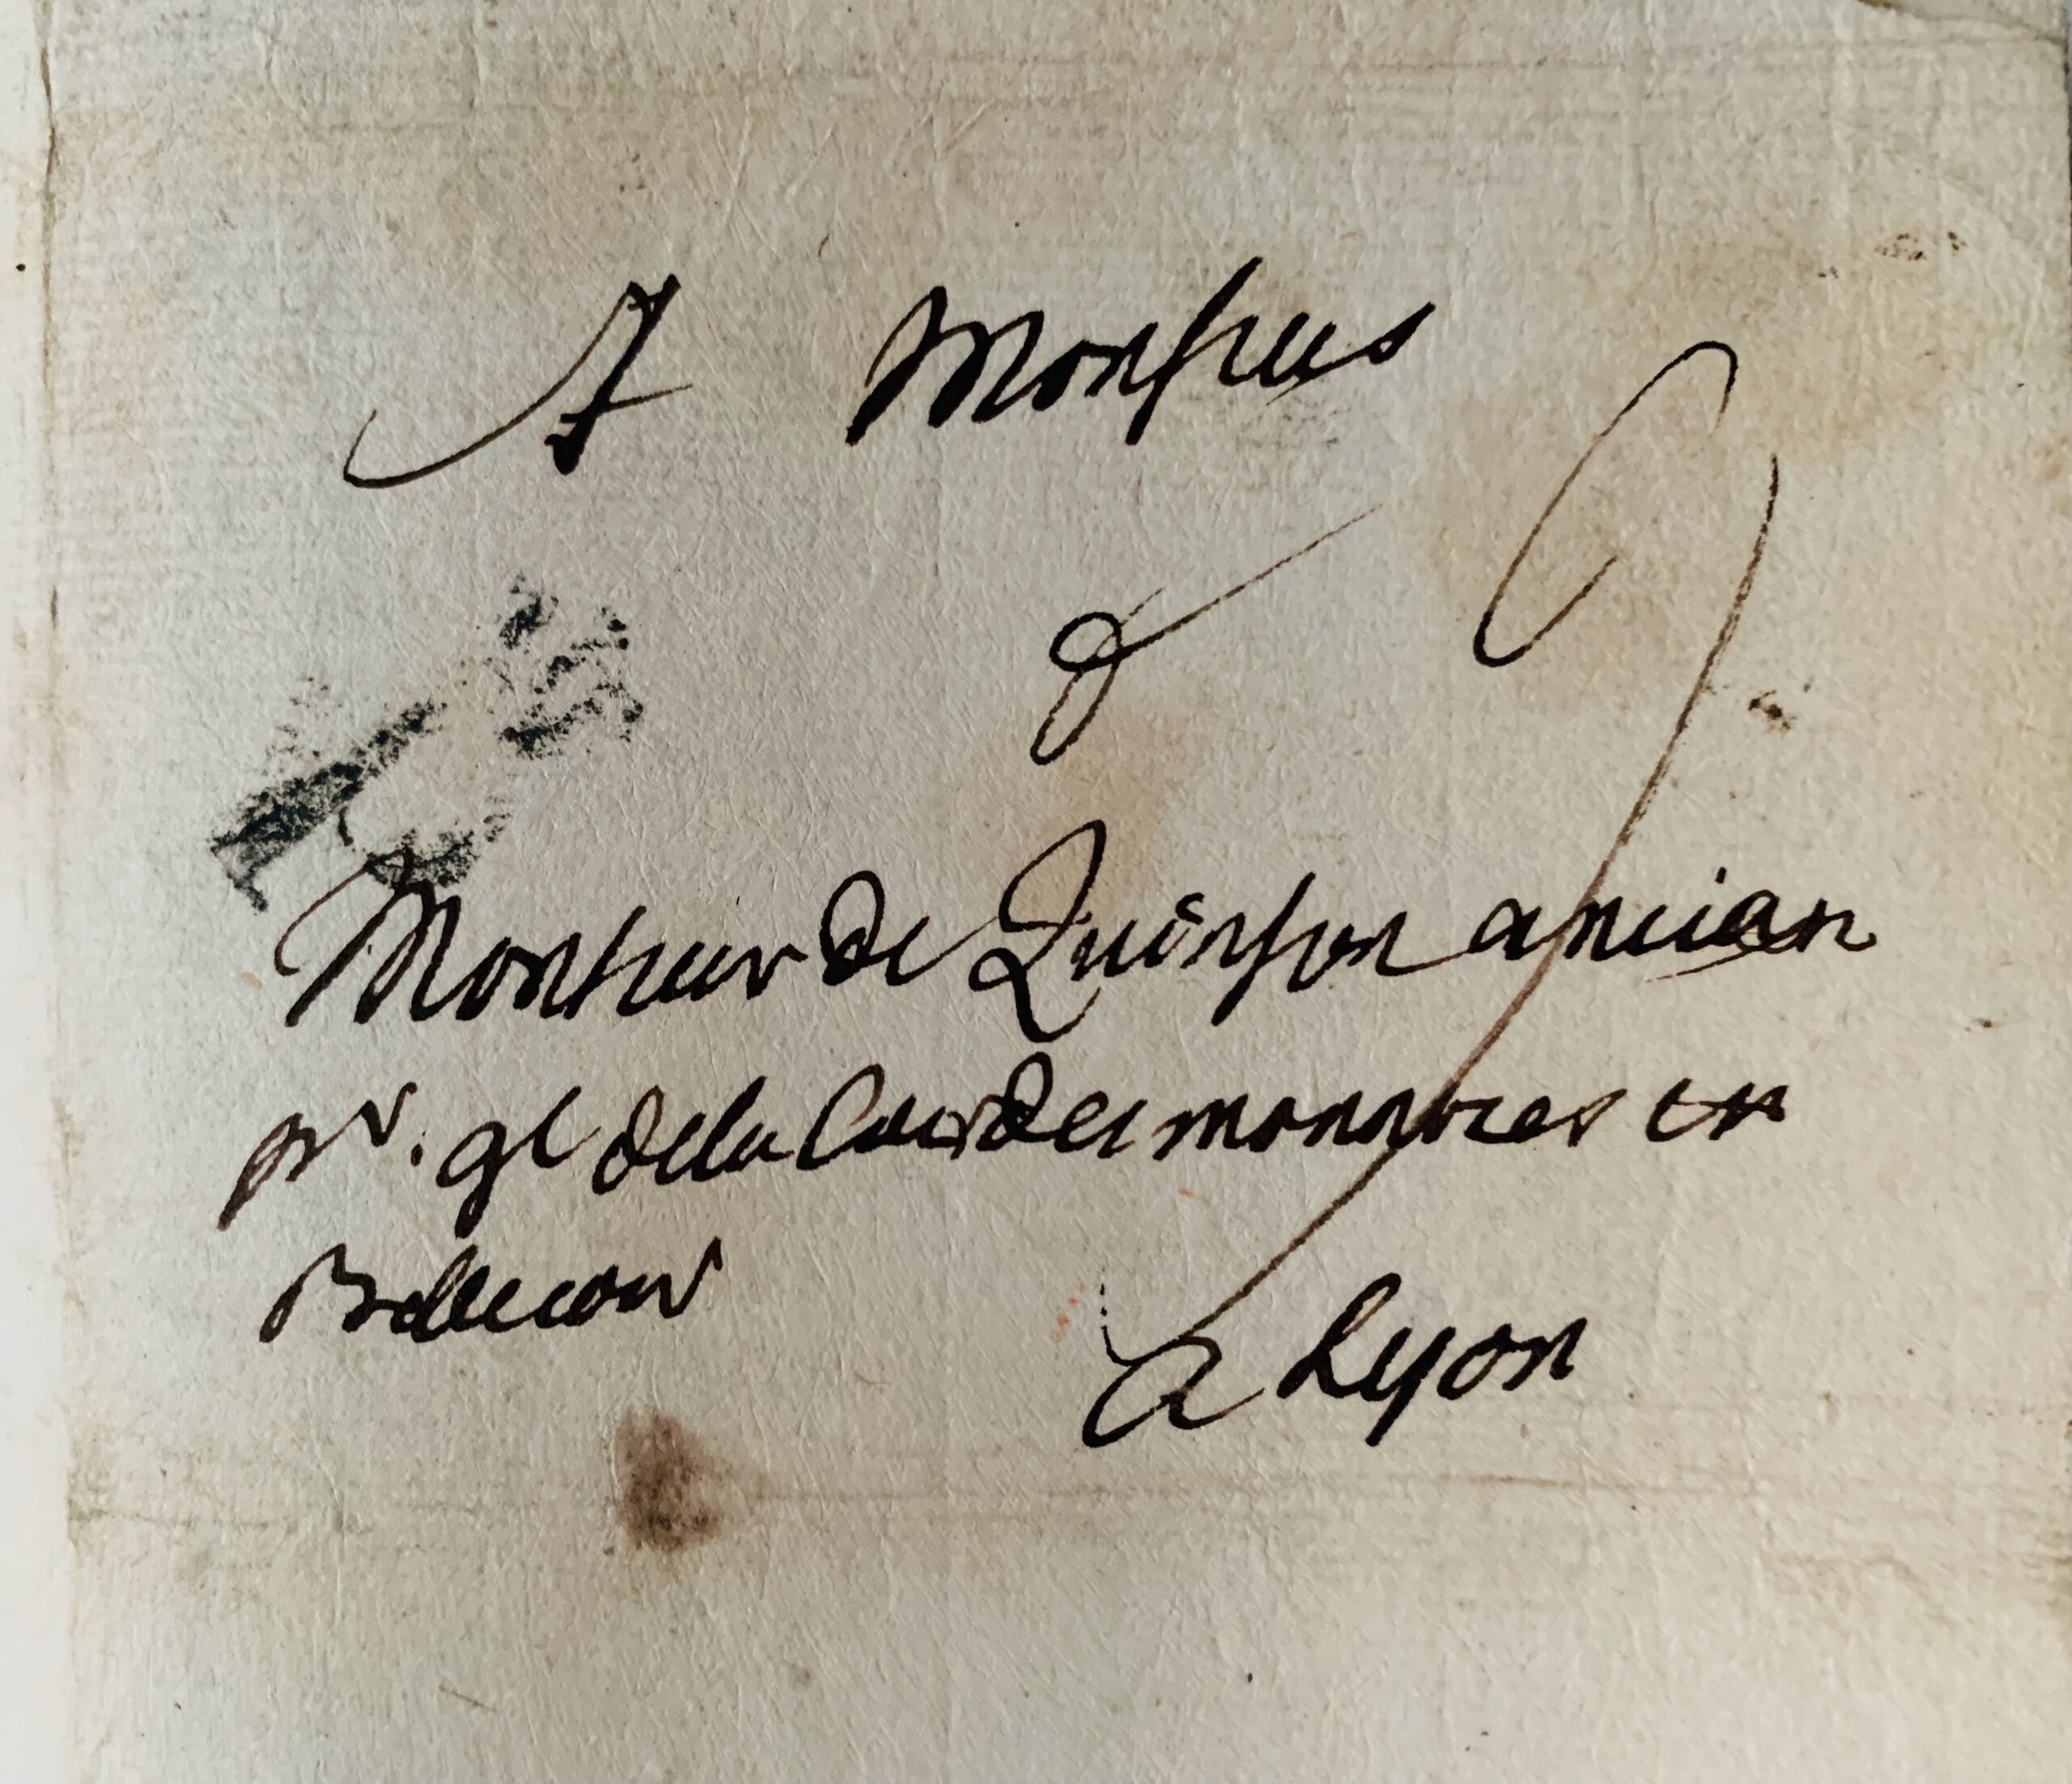 A Monsieur
Monsieur de Quinson ancian
pr. gl de la Cour des monnoies en
Bellecour
a Lyon